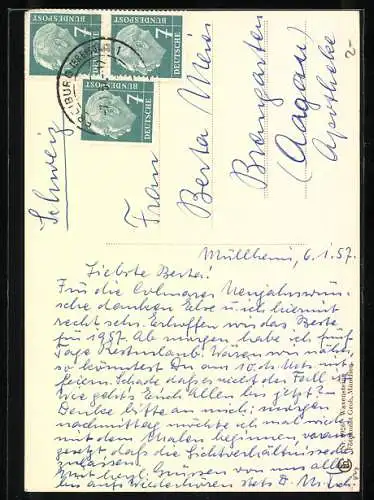 7
DEUTSCHE
BUNDESPOST
7
DEUTSCHE
BUNDESPOST
7
DEUTSCHE
BUNDESPOST
Schweiz
Frau
Berta Meier
Bremgarten
(Aargau)
Apotheke
Müllheim, 6.1.57.
Liebste Berta!
Für die Colmarer Neujahrswün-
sche danken Else u. ich hiermit
recht sehr. Erhoffen wir das Beste
für 1957. Ab morgen habe ich fünf
Tage Resturlaub. Wären wir näher,
so könntest Du am 10. ds. Mts. mit
feiern. Schade daß es nicht der Fall ist.
Wie geht's Euch allen bis jetzt?
Denke bitte an mich; morgen
nachmittag möchte ich mal wieder
mit dem Malen beginnen, voraus-
gesetzt, dass die Lichtverhältnisse
zulassen.
Mit herzl. Grüssen von uns allen
bis auf Wiederhören stets D.